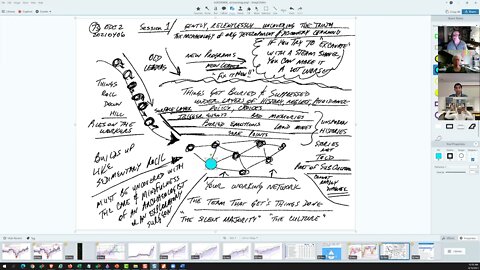 EDC 2
20210406
Session 1
GENTLY, RELENTLESSLY UNCOVERING THE TRUTH
THE ARCHAEOLOGY OF ORG DEVELOPMENT & DISCOVERY LEARNING
OLD LEADERS
NEW PROGRAMS
NEW LEADERS
"FIX IT NOW!"
IF YOU TRY TO EXCAVATE
WITH A STEAM SHOVEL,
YOU CAN MAKE IT
A LOT WORSE!
THINGS
ROLL
DOWN
HILL
ALL ON THE
WORKERS
THINGS GET BURIED & SUPPRESSED
UNDER LAYERS OF HISTORY, NEGLECT, AVOIDANCE
POLICY, CHOICES
SURFACE LAYER
TRIGGER
BAD MEMORIES
BURIED EMOTIONS
LAND MINES
SORE POINTS
UNSPOKEN
HISTORIES
STORIES
NOT
TOLD
PART OF SUB CULTURE
BUILDS UP
LIKE
SEDIMENTARY ROCK
MUST BE UNCOVERED WITH
THE CARE & MINDFULNESS
OF AN ARCHAEOLOGIST
OR AN EXPLORATORY
SURGEON
YOUR WORKING NETWORK
THE TEAM THAT GET'S THINGS DONE
"THE SILENT MAJORITY" "THE CULTURE"